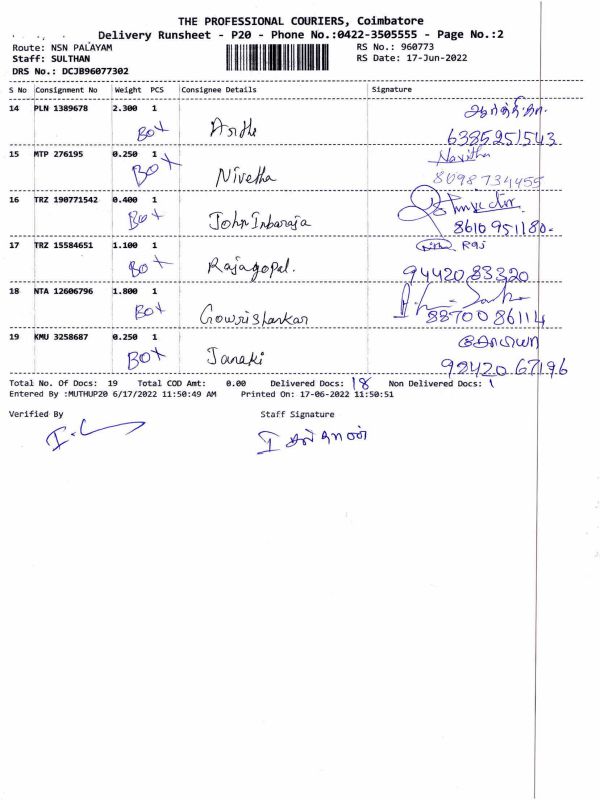 THE PROFESSIONAL COURIERS, Coimbatore
Delivery Runsheet - P20 - Phone No.:0422-3505555 - Page No.:2
Route: NSN PALAYAM RS No.: 960773
Staff: SULTHAN RS Date: 17-Jun-2022
DRS No.: DCJB96077302
S No Consignment No Weight PCS Consignee Details Signature
14 PLN 1389678 2.300 1
BOX 6385251543
15 MTP 276195 0.250 1 Navitha
BOX Nivetha 8098734455
16 TRZ 190771542 0.400 1
BOX John Inbaraja 8610951180-
17 TRZ 15584651 1.100 1 Raj
BOX Rajagopal. 9442083320
18 NTA 12606796 1.800 1
BOX Gowrishankar 8870086114
19 KMU 3258687 0.250 1
BOX Janaki 9842067196
Total No. Of Docs: 19 Total COD Amt: 0.00 Delivered Docs: 18 Non Delivered Docs: 1
Entered By :MUTHUP20 6/17/2022 11:50:49 AM Printed On: 17-06-2022 11:50:51
Verified By Staff Signature